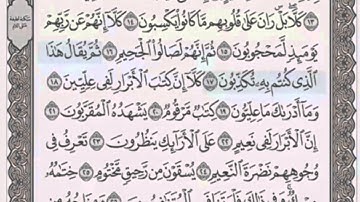 ١٣ كَلَّا ۖ بَلْ ۜ رَانَ عَلَىٰ قُلُوبِهِم مَّا كَانُوا۟ يَكْسِبُونَ ١٤ كَلَّآ إِنَّهُمْ عَن رَّبِّهِمْ
يَوْمَئِذٍ لَّمَحْجُوبُونَ ١٥ ثُمَّ إِنَّهُمْ لَصَالُوا۟ ٱلْجَحِيمِ ١٦ ثُمَّ يُقَالُ هَٰذَا
ٱلَّذِى كُنتُم بِهِۦ تُكَذِّبُونَ ١٧ كَلَّآ إِنَّ كِتَٰبَ ٱلْأَبْرَارِ لَفِى عِلِّيِّينَ ١٨
وَمَآ أَدْرَىٰكَ مَا عِلِّيُّونَ ١٩ كِتَٰبٌ مَّرْقُومٌ ٢٠ يَشْهَدُهُ ٱلْمُقَرَّبُونَ ٢١
إِنَّ ٱلْأَبْرَارَ لَفِى نَعِيمٍ ٢٢ عَلَى ٱلْأَرَآئِكِ يَنظُرُونَ ٢٣ تَعْرِفُ فِى
وُجُوهِهِمْ نَضْرَةَ ٱلنَّعِيمِ ٢٤ يُسْقَوْنَ مِن رَّحِيقٍ مَّخْتُومٍ ٢٥ خِتَٰمُهُۥ